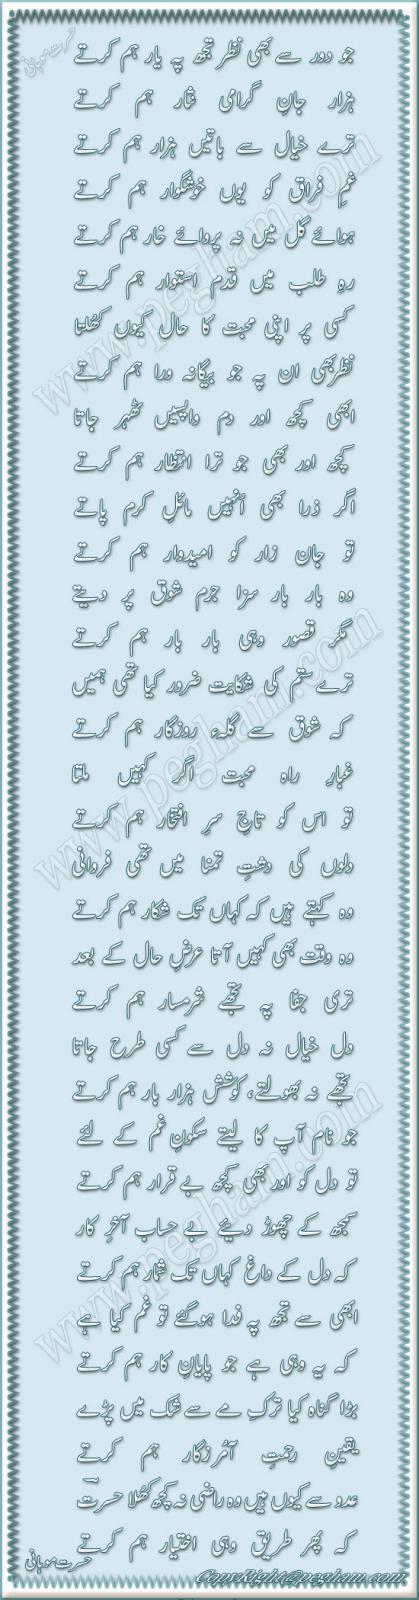 حسرت موہانی
جو دور سے بھی نظر تجھ پہ یار ہم کرتے
ہزار جانِ گرامی نثار ہم کرتے
ترے خیال سے باتیں ہزار ہم کرتے
غمِ فراق کو یوں خوشگوار ہم کرتے
ہوائے گل میں نہ پروائے خار ہم کرتے
رہِ طلب میں قدم استوار ہم کرتے
کسی پر اپنی محبت کا حال کیوں کھلتا
نظر بھی ان پہ جو بیگانہ ورا ہم کرتے
ابھی کچھ اور دمِ واپسیں ٹھہر جاتا
کچھ اور بھی جو ترا انتظار ہم کرتے
اگر ذرا بھی اُنہیں مائلِ کرم پاتے
تو جان زار کو امیدوار ہم کرتے
وہ بار بار سزا جرم شوق پر دیتے
مگر قصور وہی بار بار ہم کرتے
ترے ستم کی شکایت ضرور کیا تھی ہمیں
کہ شوق سے گلہء روزگار ہم کرتے
غبارِ راہ محبت اگر کہیں ملتا
تو اس کو تاجِ سرِ افتخار ہم کرتے
دلوں کی دشتِ تمنا میں تھی فروانی
وہ کہتے ہیں کہ کہاں تک شکار ہم کرتے
وہ وقت بھی کہیں آتا عرضِ حال کے بعد
تری جفا پہ تجھے شرمسار ہم کرتے
دل خیال نہ دل سے کسی طرح جاتا
تجھے نہ بھولتے، کوشش ہزار بار ہم کرتے
جو نام آپ کا لیتے سکونِ غم کے لئے
تو دل کو اور بھی کچھ بے قرار ہم کرتے
سمجھ کے چھوڑ دیئے بے حساب آخرِ کار
کہ دل کے داغ کہاں تک شمار ہم کرتے
ابھی سے تجھ پہ فدا ہوگئے تو غم کیا ہے
کہ یہ وہی ہے جو پایانِ کار ہم کرتے
بڑا گناہ کیا ترکِ مے سے شک میں پڑے
یقینِ رحمتِ آمرزگار ہم کرتے
عدو سے کیوں ہیں وہ راضی نہ کچھ کھُلا حسرتؔ
کہ پھر طریق وہی اختیار ہم کرتے
حسرت موہانی
CopyRight@pegham.com
www.pegham.com
www.pegham.com
www.pegham.com